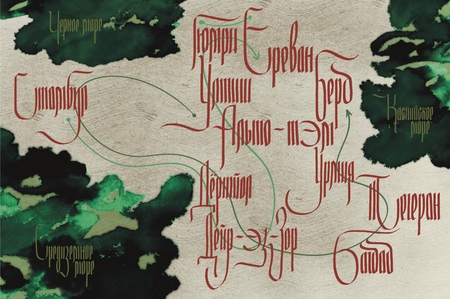 Черное море
Гюмри
Ереван
Стамбул
Берд
Каспийское
море
Урмия
Тегеран
Средиземное
море
Дейр-эз-Зор
Багдад